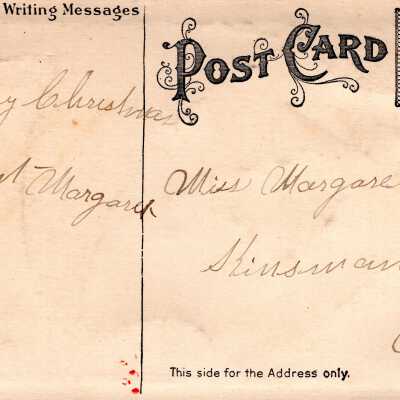 Writing Messages
POST CARD
y Christmas
t Margaret
Miss Margare
Kinsman
This side for the Address only.